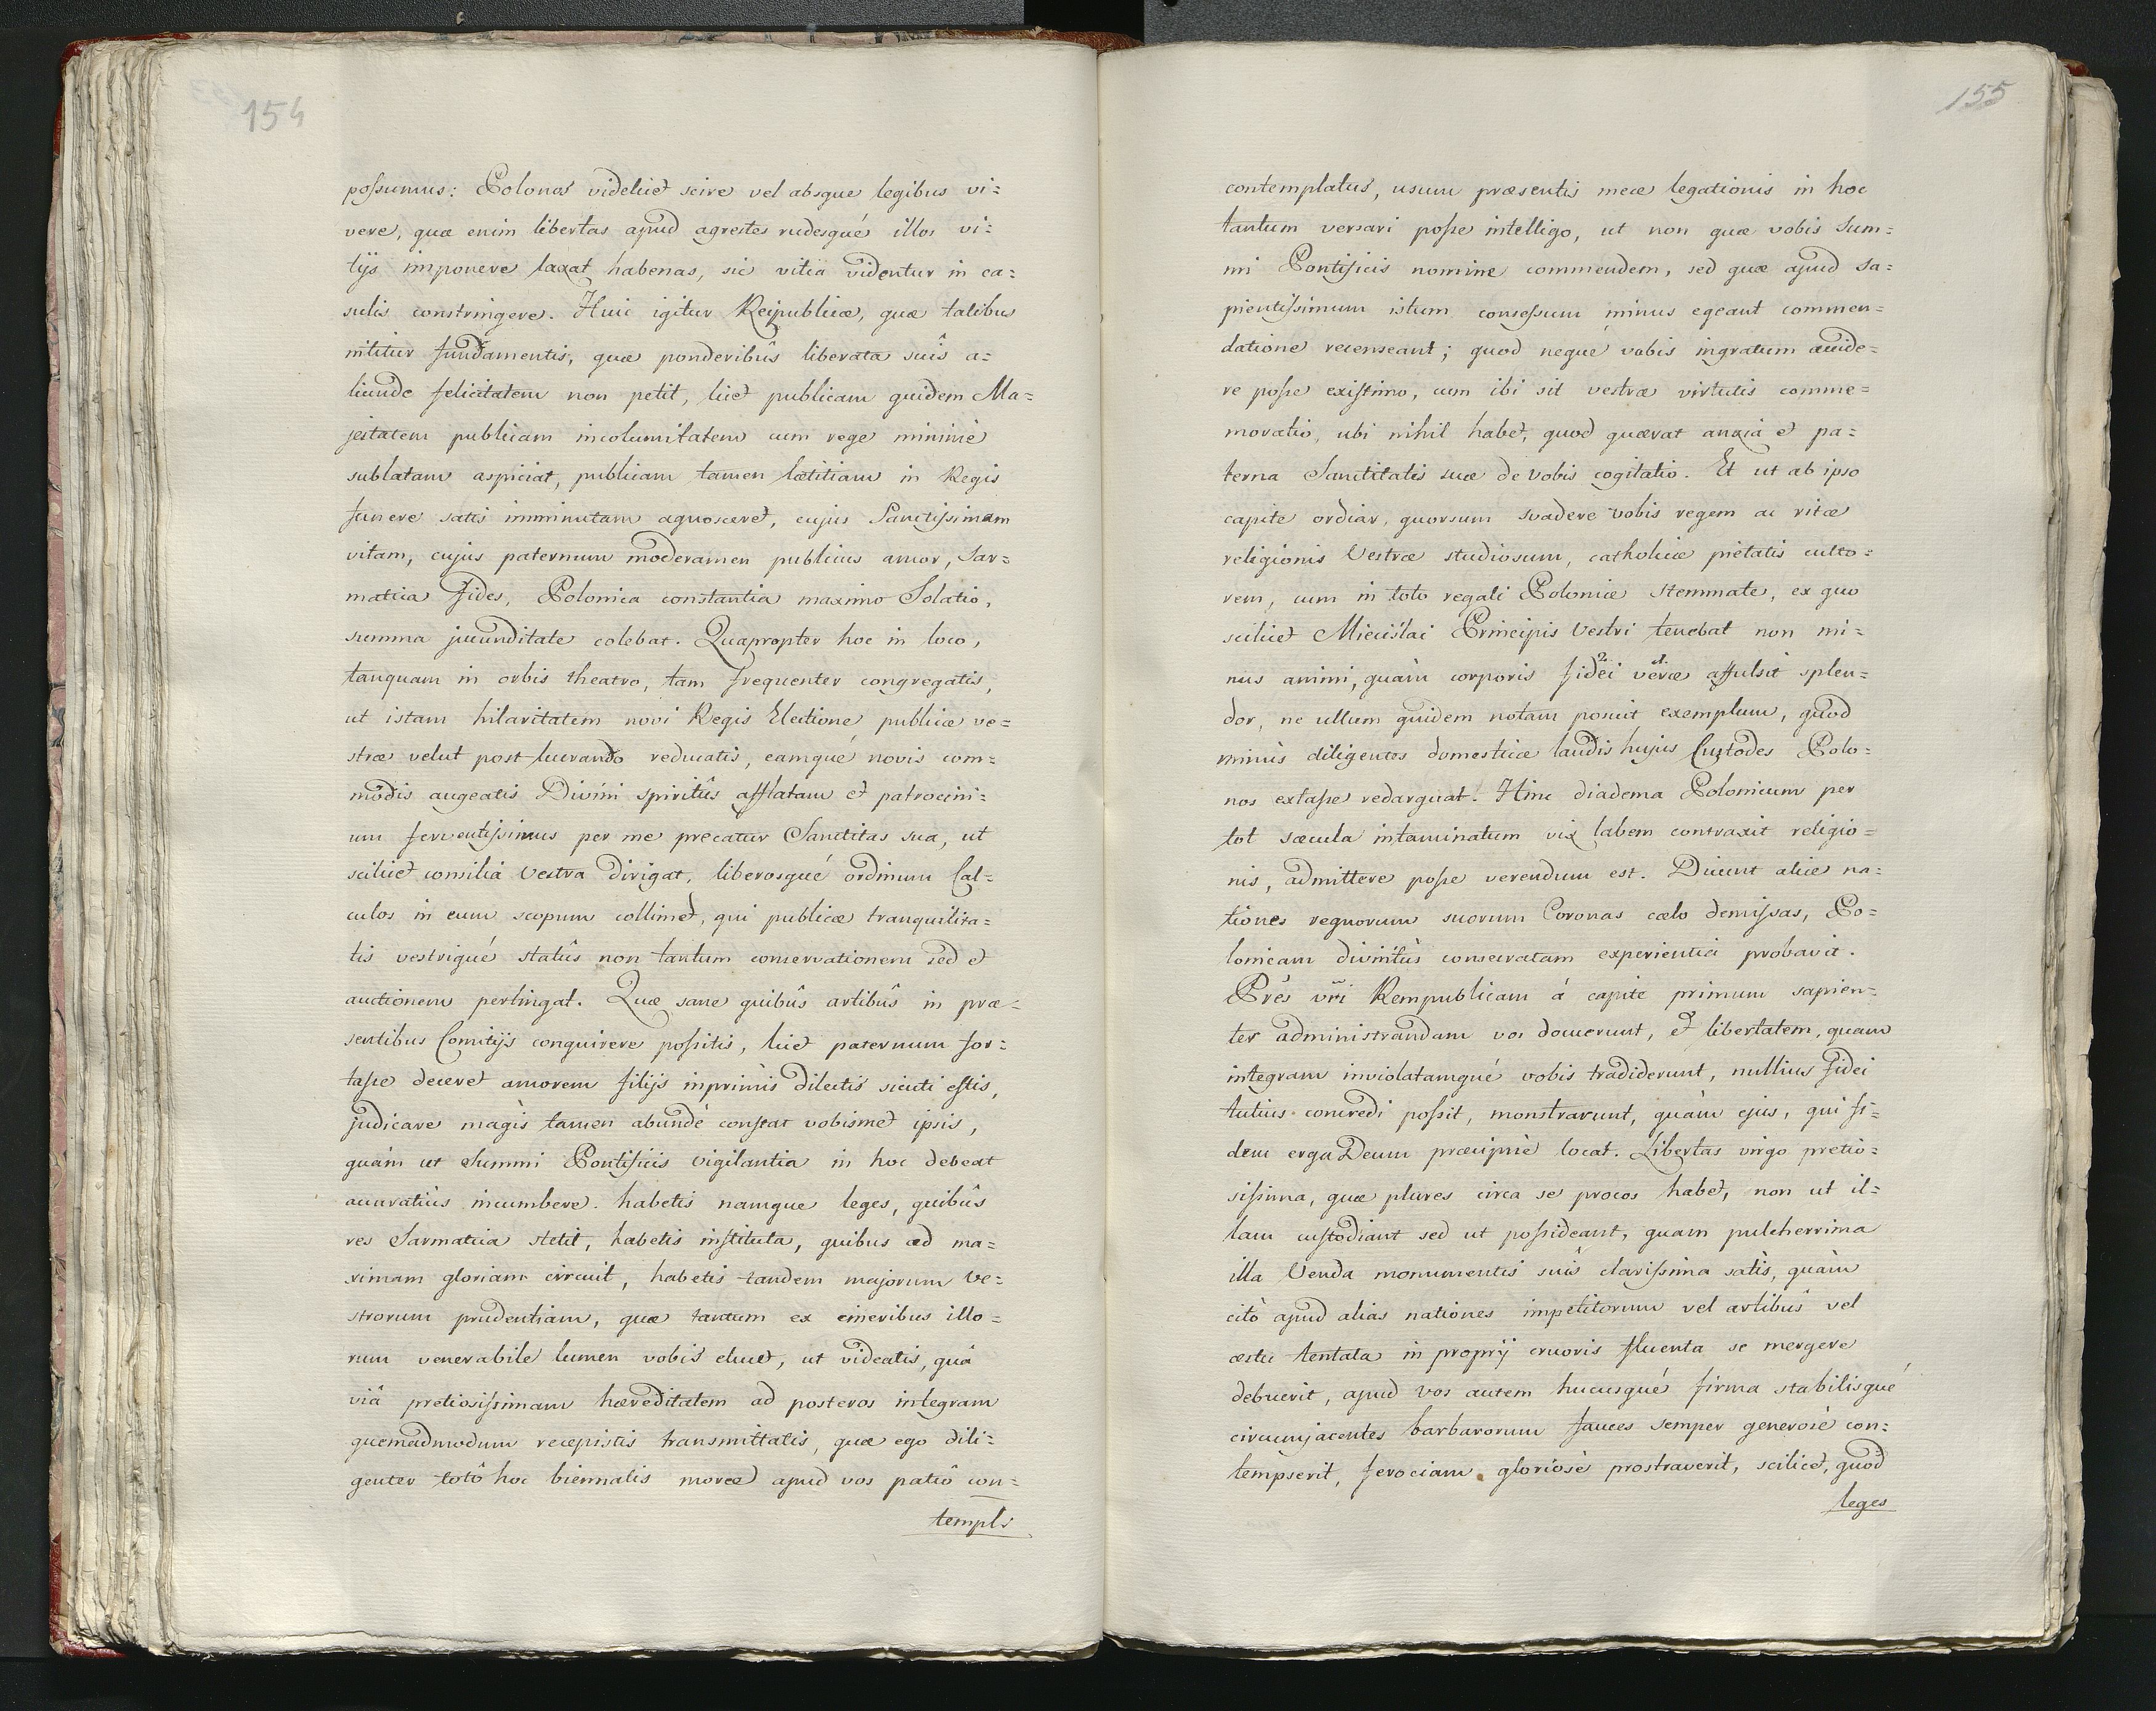 154
possumus: Polonos videlicet scire vel absque legibus vi=
vere, quæ enim libertas apud agrestes rudesqué illos vi:
tijs imponere laxat habenas, sic vitia videntur in ca:
sulis constringere. Huic igitur Reipublicæ, quæ talibus
nititur fundamentis, quæ ponderibûs liberata suis a=
liunde felicitatem non petit, licet publicam quidem Ma=
jestatem publicam incolumitatem cum rege minimè
sublatam aspiciat, publicam tamen lætitiam in Regis
funere satis imminutam agnosceret, cujus Sanctissimam
vitam, cujus paternum moderamen publicus amor, Sar=
matica fides, Polonica constantia maximo Solatio,
summa jucunditate colebat. Quapropter hoc in loco,
tanquam in orbis theatro, tam frequenter congregatis,
ut istam hilaritatem novi Regis Electione publicæ ve=
stræ velut post lucrando reducatis, eamqué novis com=
modis augeatis Divini spiritûs afflatum et patrocini=
um ferventissimus per me precatur Sanctitas sua, ut
scilicet consilia Vestra dirigat, liberosqué ordinum Cal=
culos in eum scopum collimet, qui publicæ tranquilita=
tis vestriqué statûs non tantum conservationem sed et
auctionem pertingat. Quæ sane quibûs artibûs in præ=
sentibus Comitijs conquirere possitis, licet paternum for=
tasse deceret amorem filijs inprimis dilectis sicuti estis,
judicare magis tamen abundè constat vobismet ipsis,
quàm ut Summi Pontificis vigilantia in hoc debeat
accuratiùs incumbere. habetis namque leges, quibûs
res Sarmatica stetit, habetis instituta, quibus ad ma=
ximam gloriam circuit, habetis tandem majorum Ve=
strorum prudentiam, quæ tantum ex cineribus illo=
rum venerabile lumen vobis elucet, ut videatis, quâ
viâ pretiosissimam hæreditatem ad posteros integram
quemadmodum recepistis transmittatis, quæ ego dili=
genter totô hoc biennalis moræ apud vos patiô con=
templ:
155
contemplatus, usum præsentis meæ legationis in hoc
tantum versari posse intelligo, ut non quæ vobis Sum=
mi Pontificis nomine commendem, sed quæ apud Sa=
pientissimum istum consessum minus egeant commen=
datione recenseant; quod neque vobis ingratum accide=
re posse existimo, cum ibi sit vestræ virtutis comme=
moratio, ubi nihil habet, quod quærat anxia et pa=
terna Sanctitatis suæ de vobis cogitatio. Et ut ab ipso
capite ordiar, quorsum svadere vobis regem ac ritæ
religionis Vestræ studiosum, catholicæ pietatis culto=
rem, cum in toto regali Poloniæ Stemmate, ex quo
scilicet Miecislai Principis Vestri tenebat non mi=
nus animi, quàm corporis fidei veræ affulsit splen=
dor, ne ullum quidem notam posuit exemplum, quod
minùs diligentes domesticæ laudis hujus Custodes Polo=
nos extasse redarguat. Hinc diadema Polonicum per
tot sæcula intaminatum vix labem contraxit religio=
nis, admittere posse verendum est. Dicunt aliæ na=
tiones regnorum suorum Coronas cælo demissas, Po=
lonicam divinitùs conservatam experientia probavit.
Prẽs vr̃i Rempublicam á capite primum sapien=
ter administrandam vos docuerunt, et libertatem, quam
integram inviolatamqué vobis tradiderunt, nullius fidei
tutius concredi possit, monstrarunt, quàm ejus, qui fi=
dem erga Deum præcipuè locat. Libertas virgo pretio=
sissima, quæ plures circa se procos habet, non ut il=
lam custodiant sed ut possideant, quam pulcherrima
illa Venda monumentis suis clarissima satis, quàm
citò apud alias nationes impetitorum vel artibûs vel
æstu tentata in proprij cruoris fluenta se mergere
debuerit, apud vos autem hucusqué firma stabilisqué
circumjacentes barbarorum fauces semper generosè con=
tempserit, ferociam gloriosè prostraverit, scilicet, quod
leges